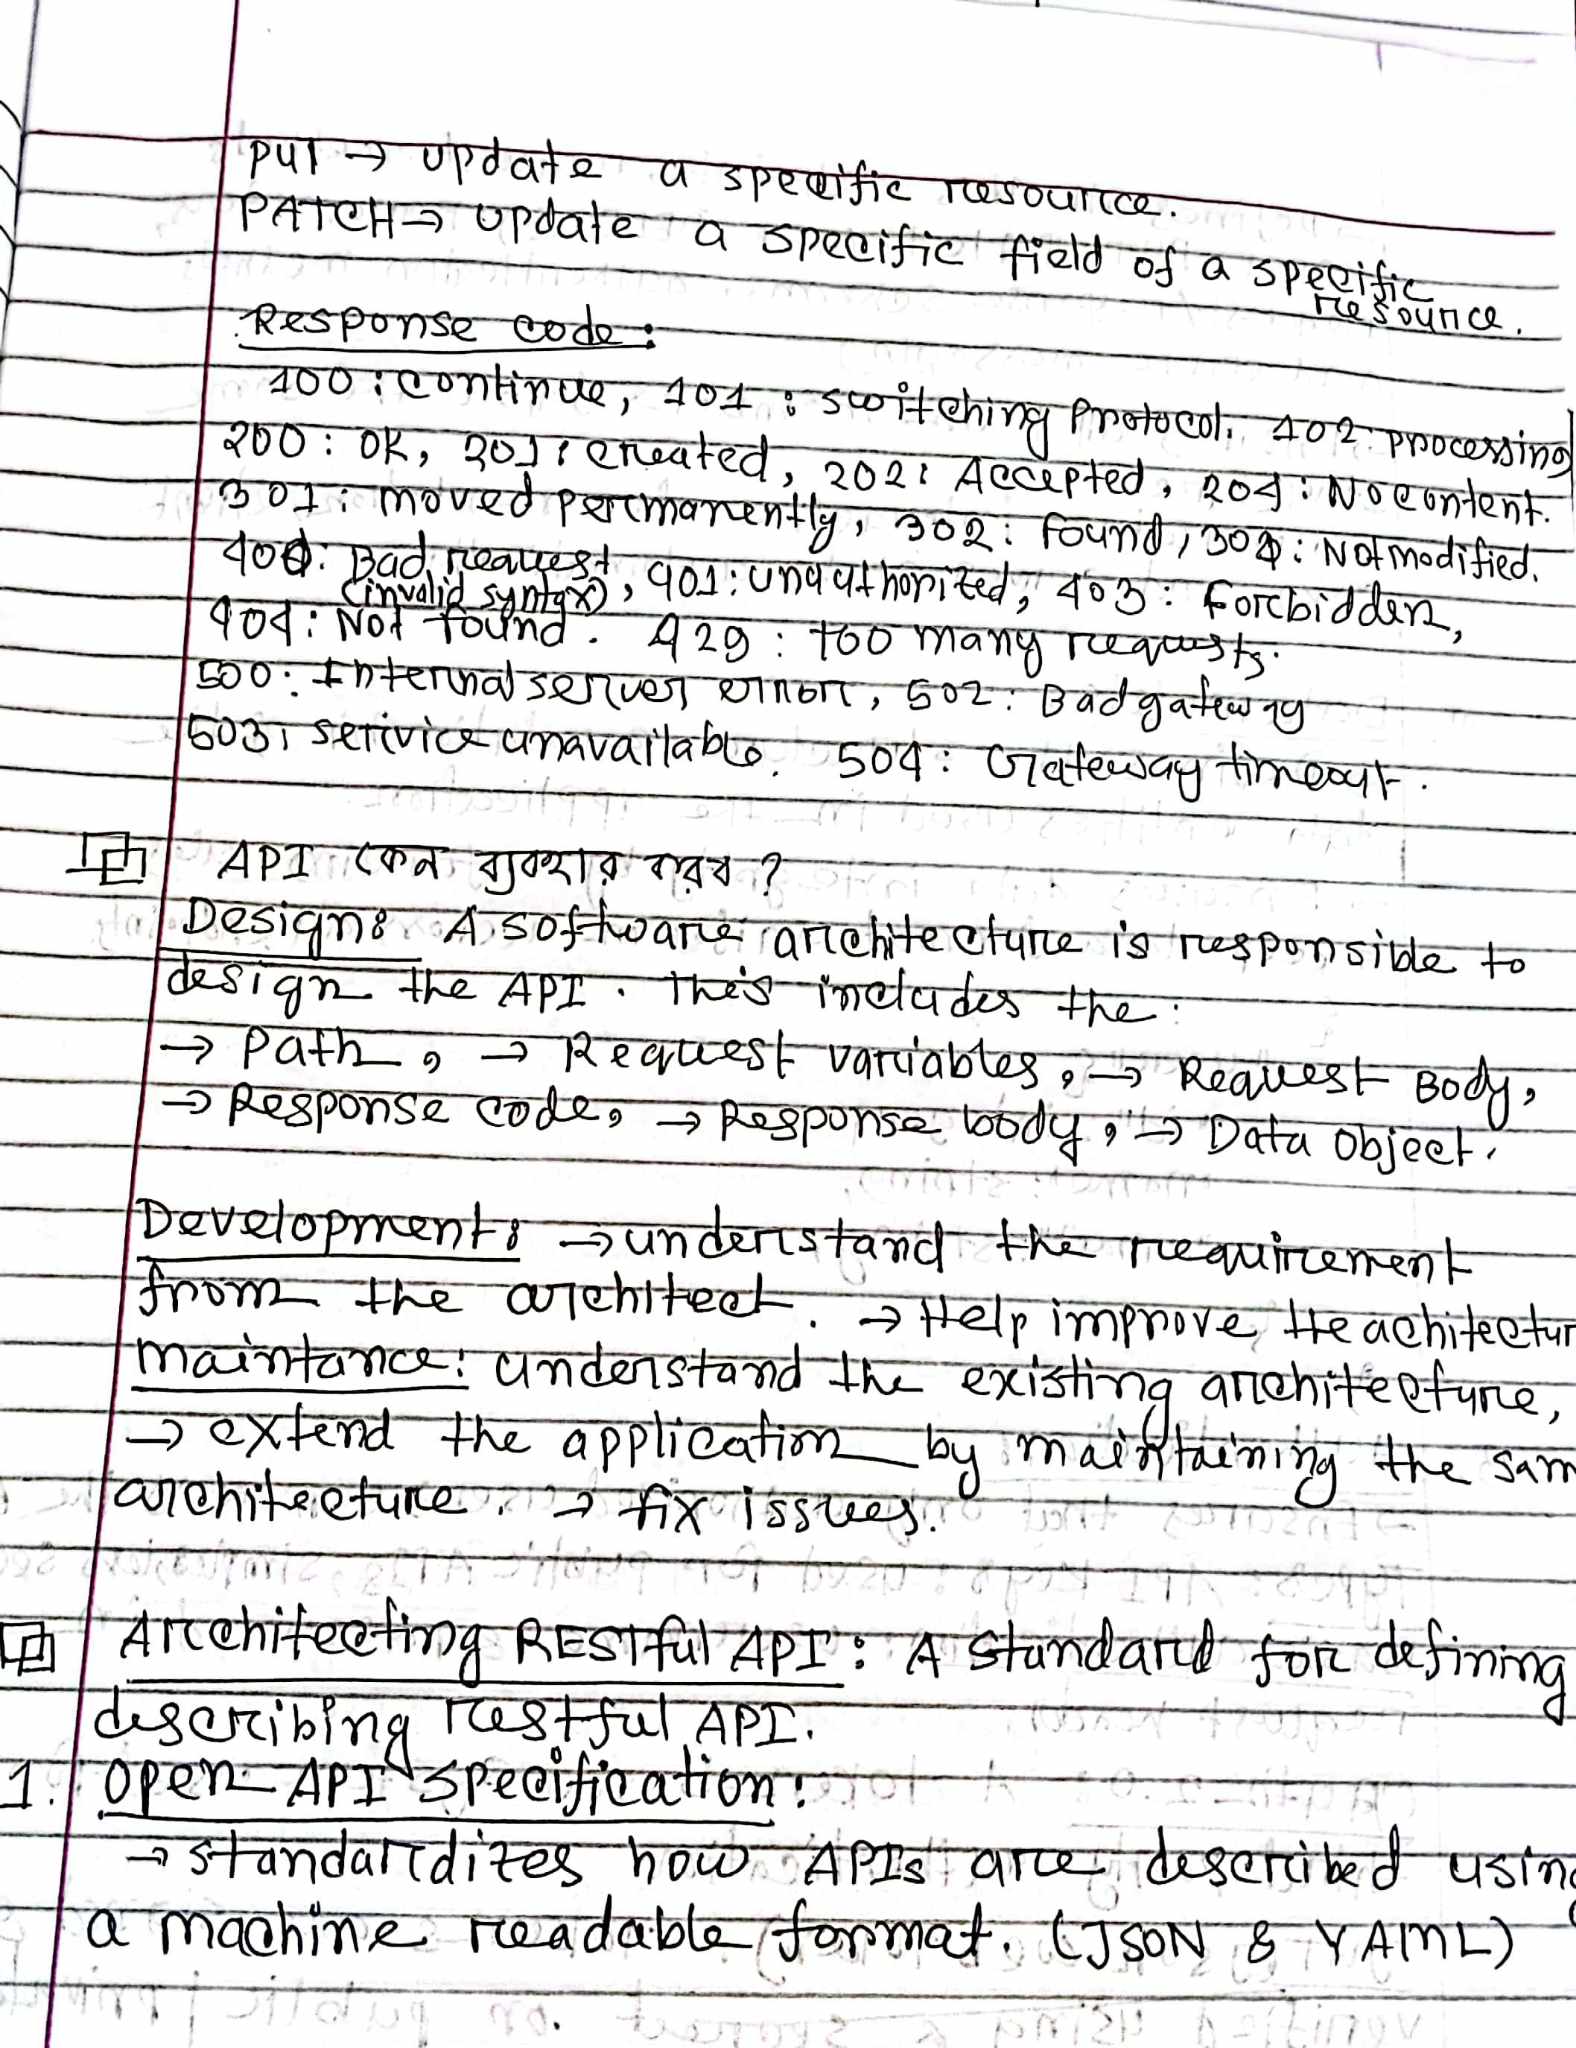 PUT → update a specific resource.
PATCH → update a specific field of a specific
resource.
Response code:
100: continue, 101: switching Protocol. 102 processing
200: OK, 201: created, 202: Accepted, 204: No content.
301: moved permanently, 302: found, 304: Not modified.
400: Bad request
(invalid syntax), 401: unauthorized, 403: Forbidden,
404: Not found. 429: too many requests.
500: Internal server error, 502: Bad gateway
503: service unavailable. 504: Gateway timeout.
API কেন ব্যবহার করব ?
Design: A software architecture is responsible to
design the API. This includes the:
→ Path, → Request variables, → Request Body,
→ Response code, → Response body, → Data Object.
Development: → understand the requirement
from the architect. → Help improve the achitectur
maintance: understand the existing architecture,
→ extend the application by maintaining the sam
architecture. → fix issues.
Architecting RESTful API: A standard for defining
describing restful API.
1. Open API specification:
→ standardizes how APIs are described using
a machine readable format. (JSON & YAML)